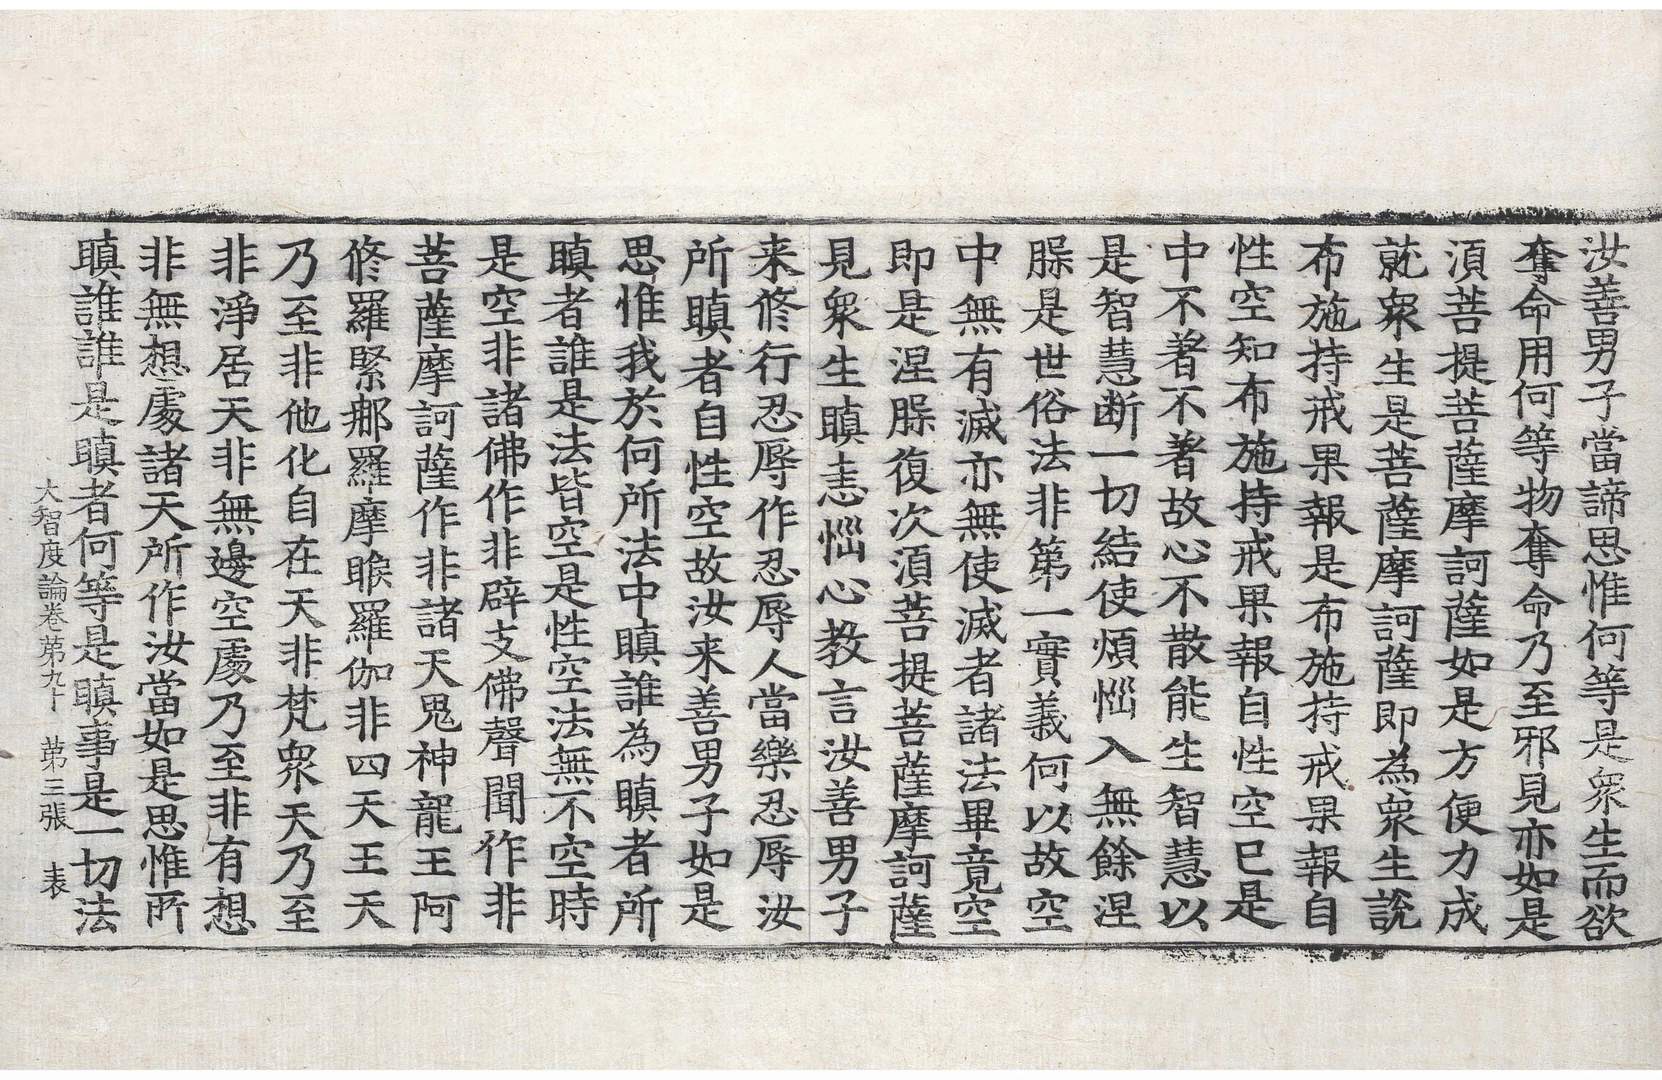 汝善男子當諦思惟何等是衆生而欲
奪命用何等物奪命乃至邪見亦如是
湏菩提菩薩摩訶薩如是方便力成
就衆生是菩薩摩訶薩即為衆生說
布施持戒果報是布施持戒果報自
性空知布施持戒果報自性空已是
中不著不著故心不散能生智慧以
是智慧断一切結使煩惱入無餘涅
脲是世俗法非第一實義何以故空
中無有滅亦無使滅者諸法畢竟空
即是涅脲復次湏菩提菩薩摩訶薩
見衆生瞋恚惱心教言汝善男子
来修行忍辱作忍辱人當樂忍辱汝
所瞋者自性空故汝来善男子如是
思惟我於何所法中瞋誰為瞋者所
瞋者誰是法皆空是性空法無不空時
是空非諸佛作非辟支佛聲聞作非
菩薩摩訶薩作非諸天鬼神龍王阿
修羅緊那羅摩睺羅伽非四天王天
乃至非他化自在天非梵衆天乃至
非淨居天非無邊空處乃至非有想
非無想處諸天所作汝當如是思惟所
瞋誰誰是瞋者何等是瞋事是一切法
大智度論卷第九十　第三張　表